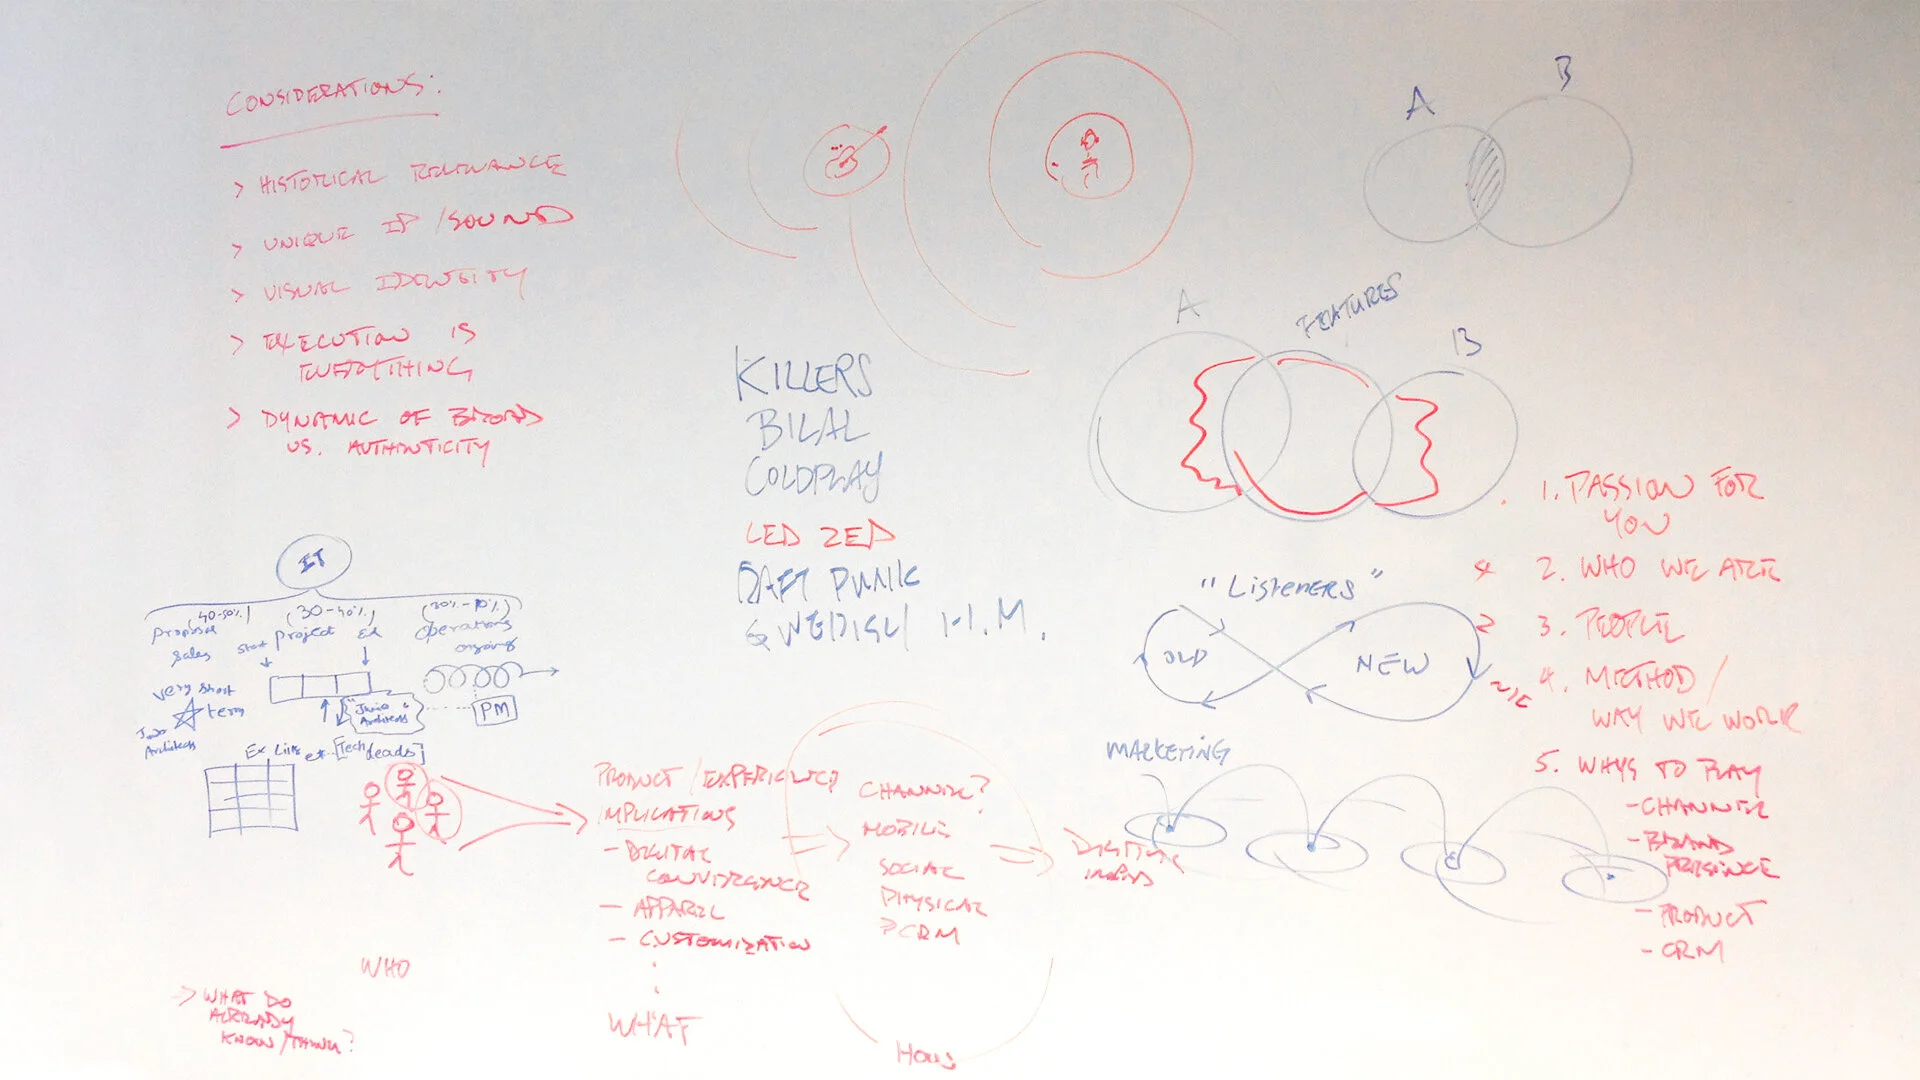 CONSIDERATIONS:
> HISTORICAL RELEVANCE
> UNIQUE IP / SOUND
> VISUAL IDENTITY
> EXECUTION IS
EVERYTHING
> DYNAMIC OF BROAD
VS. AUTHENTICITY
A
B
A
FEATURES
B
KILLERS
BILAL
COLDPLAY
LED ZED
DAFT PUNK
SWEDISH H.M.
"Listeners"
OLD
NEW
MARKETING
1. PASSION FOR
YOU
4 2. WHO WE ARE
2 3. PEOPLE
4. METHOD /
WAY WE WORK
5. WAYS TO PLAY
- CHANNEL
- BRAND
PRESENCE
- PRODUCT
- CRM
IT
(40-50%) (30-40%)
Proposal
sales
start project
operations
ongoing
very short
term
Architects
Architects
PM
[Tech leads]
PRODUCT / EXPERIENCE
IMPLICATIONS
- DIGITAL
CONVERGENCE
- APPAREL
- CUSTOMIZATION
WHAT
CHANNEL?
MOBILE
SOCIAL
PHYSICAL
CRM
WHO
> WHAT DO
ALREADY
KNOW / THINK?